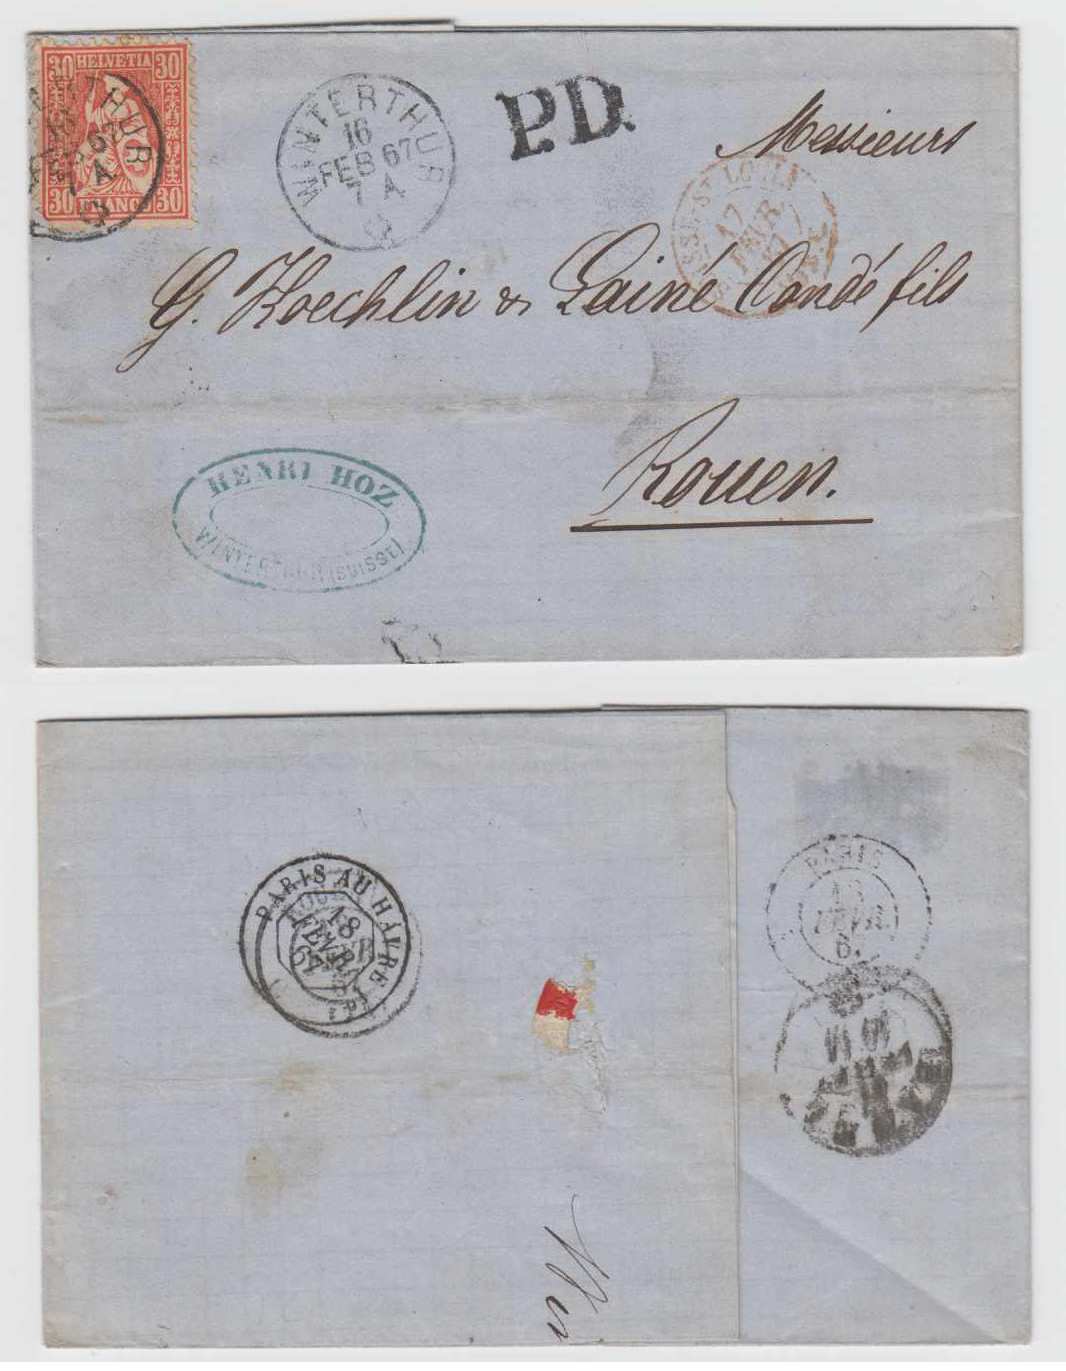 30 HELVETIA 30
30 FRANCO 30
WINTERTHUR
16
FEB 67
7 A
P.D.
Messieurs
ST LOUIS
17
FEVR.
67
G. Koechlin & Lainé Condé fils
Rouen.
HENRI HOZ
WINTERTHUR (SUISSE)
PARIS AU HAVRE
18
FEVR
67
PARIS
18
FEVR.